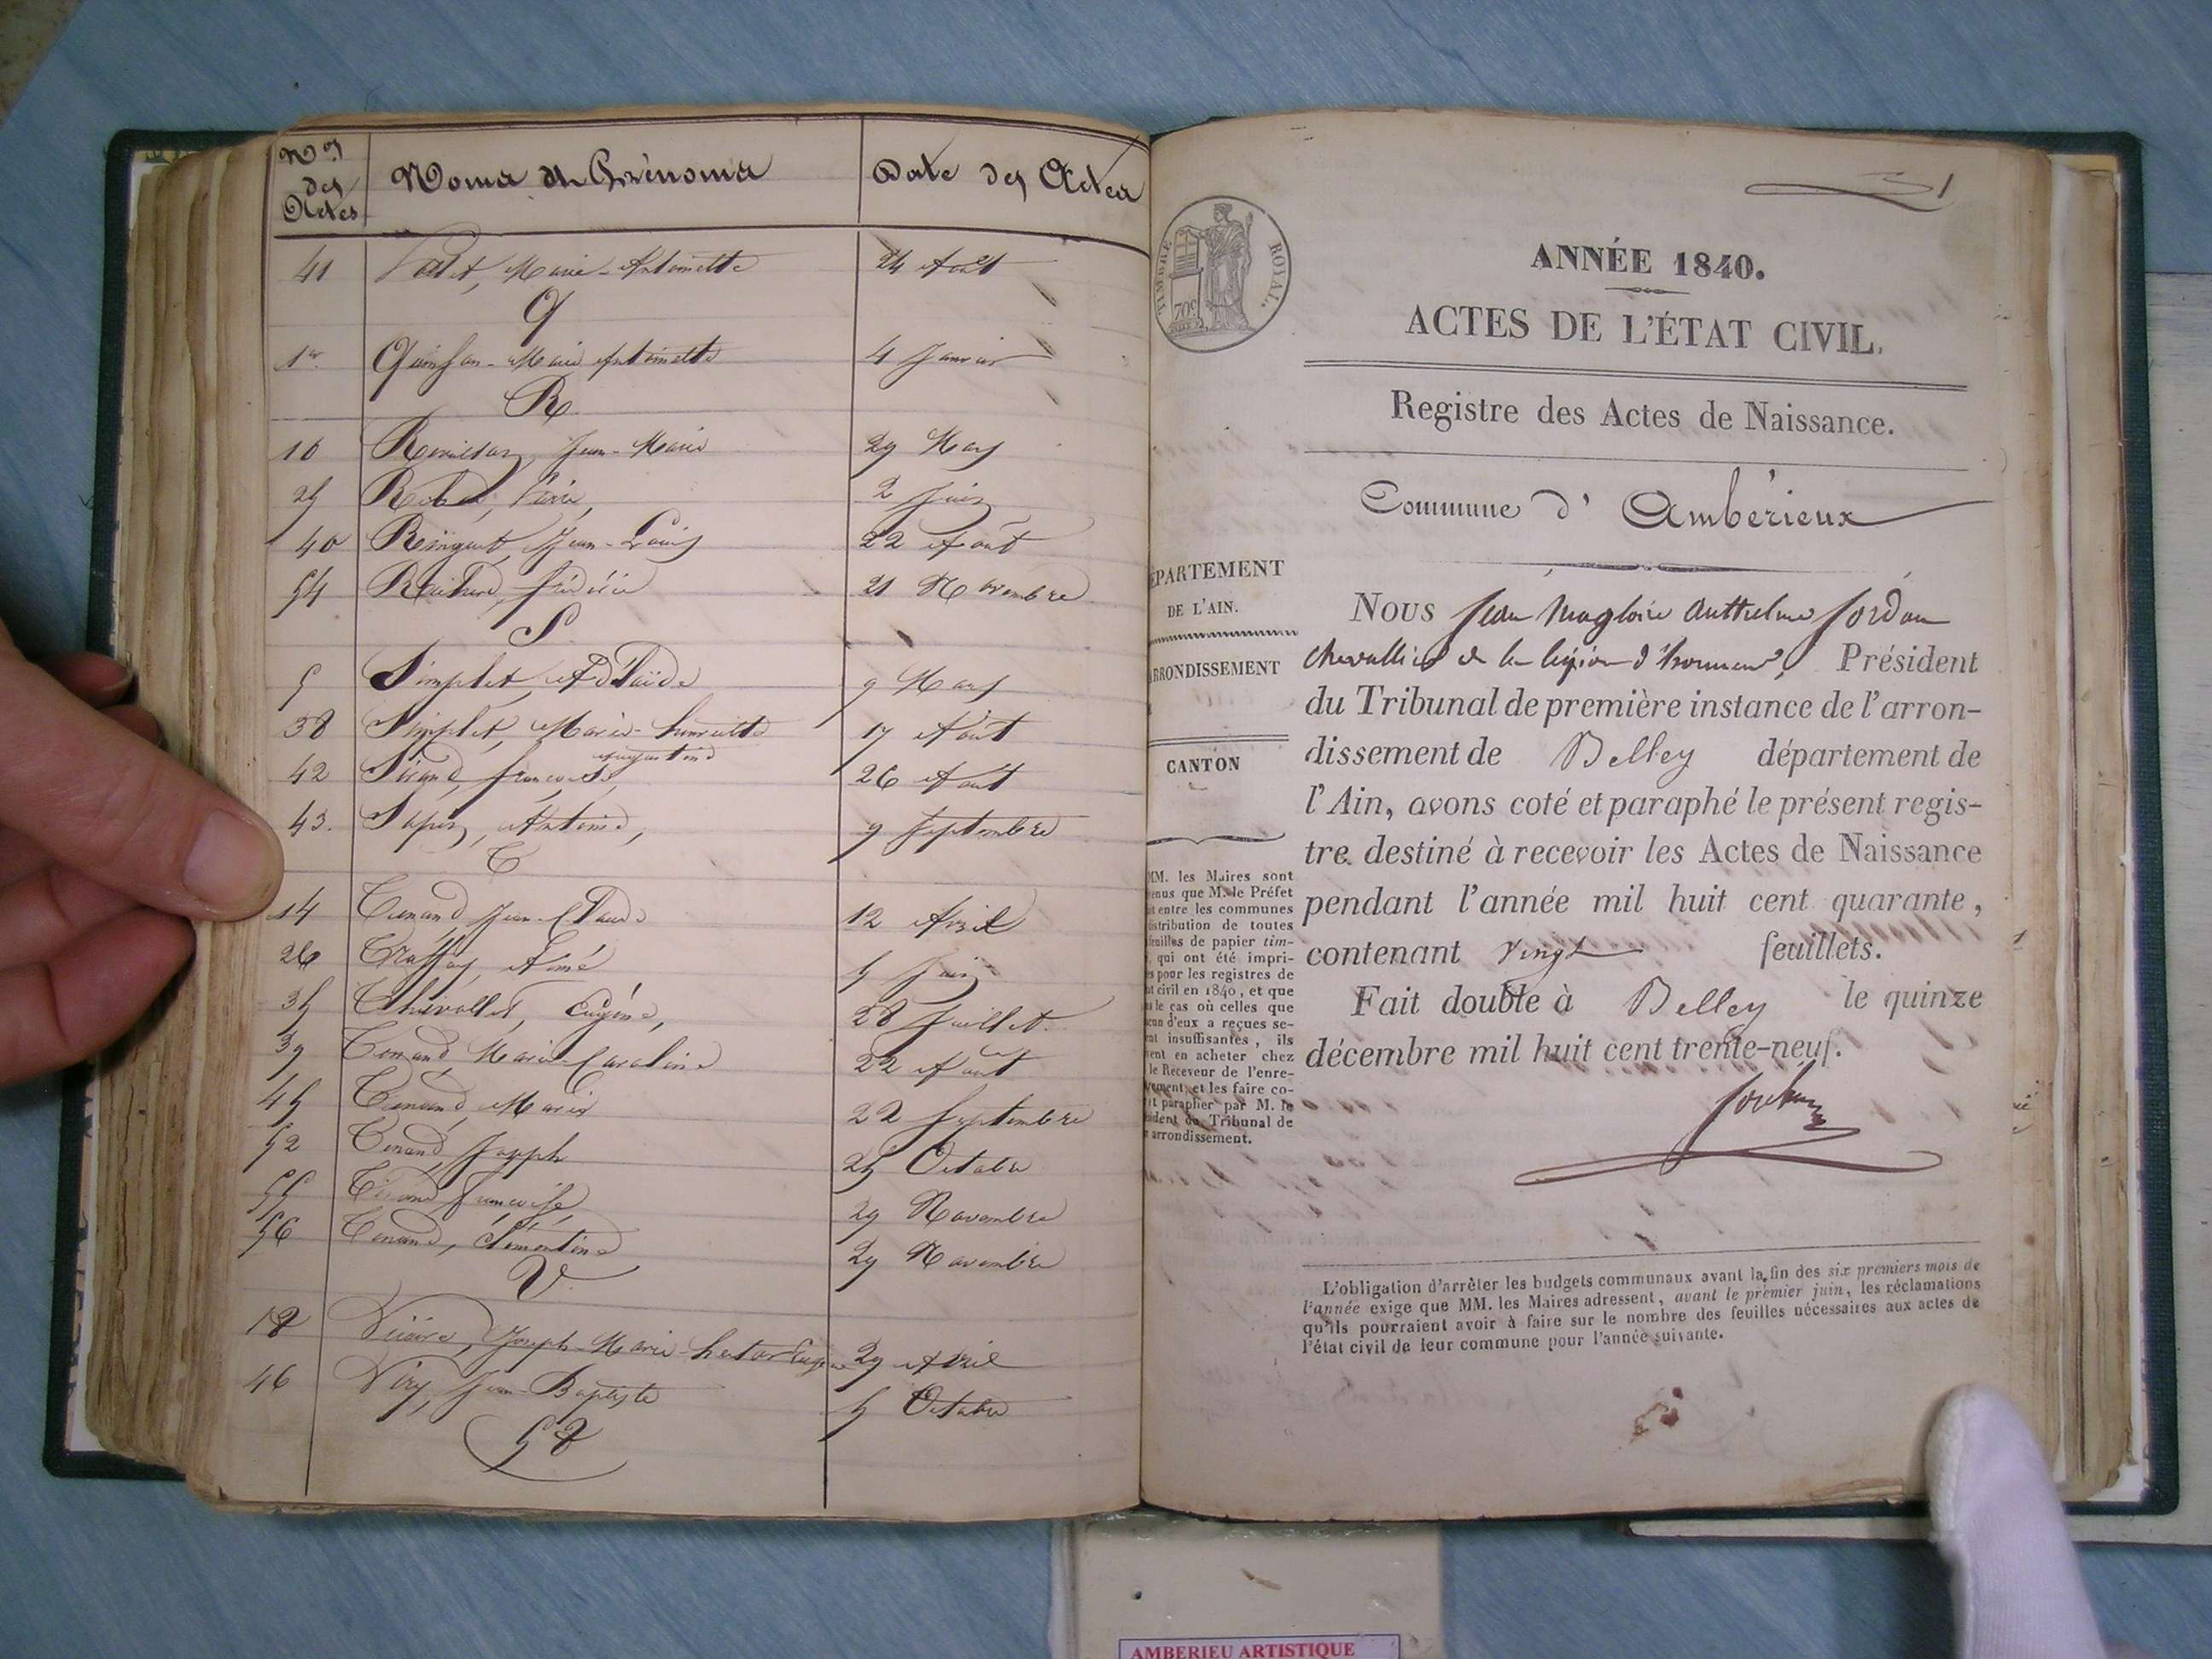 Nos des Actes
Noms et Prénoms
Date des Actes
41 Marie-Antoinette 24 Août
Q
1er Quinson Marie Antoinette 4 Janvier
R
16 Jean-Marie 29 Mars
25 2 Juin
40 Jean-Louis 22 Août
54 21 Novembre
S
5 Simplet, Adélaïde 9 Mars
38 Simplet, Marie-henriette 17 Août
42 Sirand, françois augustin 26 Août
43. Antoine, 9 Septembre
T
14 Tenand, Jean-Claude 12 Avril
26 Aimé 5 Juin
35 Thévollet, Eugène, 28 Juillet.
39 Tenand, Marie-Caroline 22 Août
45 Tenand, Marie 22 Septembre
52 Tenand, Joseph 25 Octobre
55 françoise 29 Novembre
56 Tenand, Clémentine 29 Novembre
V
18 Joseph-Marie-hector 29 Avril
46 Viry, Jean-Baptiste 5 Octobre
58
1
TIMBRE ROYAL.
70c
ANNÉE 1840.
ACTES DE L'ÉTAT CIVIL.
Registre des Actes de Naissance.
Commune d'Ambérieux
ÉPARTEMENT
DE L'AIN.
RRONDISSEMENT
CANTON
MM. les Maires sont
enus que M. le Préfet
it entre les communes
distribution de toutes
feuilles de papier tim-
, qui ont été impri-
es pour les registres de
at civil en 1840, et que
s le cas où celles que
cun d'eux a reçues se-
ent insuffisantes, ils
vent en acheter chez
le Receveur de l'enre-
rement, et les faire co-
et parapher par M. le
sident du Tribunal de
arrondissement.
NOUS Jean Magloire Anthelme Jordan
chevallier de la légion d'honneur, Président
du Tribunal de première instance de l'arron-
dissement de Belley département de
l'Ain, avons coté et paraphé le présent regis-
tre destiné à recevoir les Actes de Naissance
pendant l'année mil huit cent quarante,
contenant vingt feuillets.
Fait double à Belley le quinze
décembre mil huit cent trente-neuf.
Jordan
L'obligation d'arrêter les budgets communaux avant la fin des six premiers mois de
l'année exige que MM. les Maires adressent, avant le premier juin, les réclamations
qu'ils pourraient avoir à faire sur le nombre des feuilles nécessaires aux actes de
l'état civil de leur commune pour l'année suivante.
AMBERIEU ARTISTIQUE